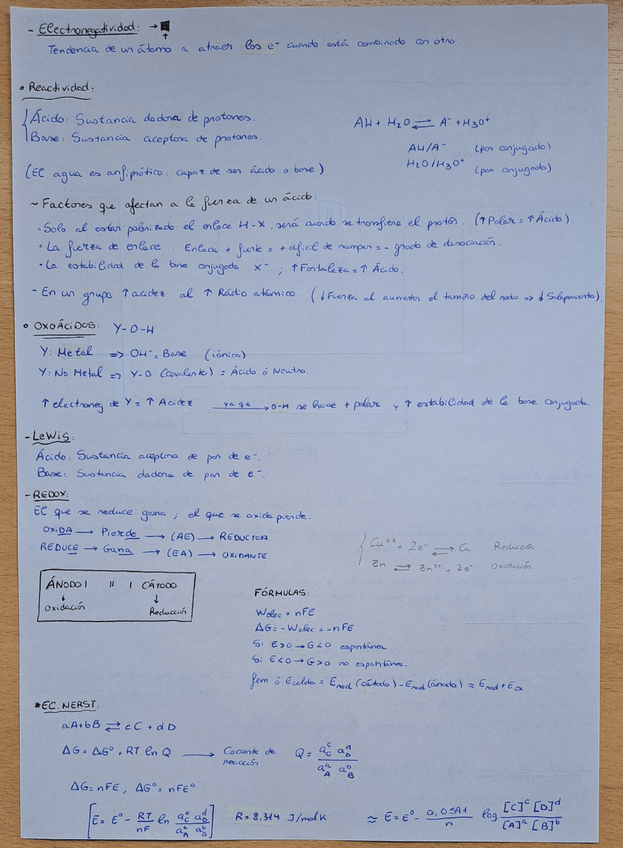 - Electronegatividad: →
↑
Tendencia de un átomo a atraer los e⁻ cuando está combinado con otro.
• Reactividad:
Ácido: Sustancia dadora de protones.
Base: Sustancia aceptora de protones.
AH + H₂O ⇌ A⁻ + H₃O⁺
AH/A⁻ (par conjugado)
H₂O/H₃O⁺ (par conjugado)
(El agua es anfiprótico: capaz de ser ácido o base)
~ Factores que afectan a la fuerza de un ácido:
• Solo al estar polarizado el enlace H-X, será cuando se transfiera el protón. (↑Polar = ↑Ácido)
• La fuerza de enlace: Enlace + fuerte = + difícil de romper = - grado de disociación.
• La estabilidad de la base conjugada X⁻ ; ↑Fortaleza = ↑ Ácido.
- En un grupo ↑ acidez al ↑ Rádio atómico (↓Fuerza al aumentar el tamaño del radio => ↓ Solapamiento)
• OXOÁCIDOS: Y-O-H
Y: Metal => OH⁻: Base (iónico)
Y: No Metal => Y-O (covalente) = Ácido ó Neutro.
↑ electroneg de Y = ↑ Acidez ya que → O-H se hace + polar y ↑ estabilidad de la base conjugada.
- LEWIS:
Ácido: Sustancia aceptora de par de e⁻.
Base: Sustancia dadora de par de e⁻.
- REDOX:
El que se reduce gana, el que se oxida pierde.
OXIDA → Pierde → (AE) → REDUCTOR
REDUCE → Gana → (EA) → OXIDANTE
Cu⁺² + 2e⁻ ⇌ Cu Reducción
Zn ⇌ Zn²⁺ + 2e⁻ Oxidación
ÁNODO | || | CÁTODO
↓ ↓
Oxidación Reducción
FÓRMULAS:
Welec = nFE
ΔG = -Welec = -nFE
Si E>0 → G<0 espontánea
Si E<0 → G>0 no espontánea.
fem ó Ecelda = Ered (cátodo) - Ered (ánodo) = Ered + Eox
* EC. NERST:
aA + bB ⇌ cC + dD
ΔG = ΔG° + RT ln Q → Cociente de reacción Q = a_C^c a_D^d / a_A^a a_B^b
ΔG = nFE, ΔG° = nFE°
[E = E° - RT/nF ln a_C^c a_D^d / a_A^a a_B^b] R = 8.314 J/molK ≈ E = E° - 0,0591/n log [C]^c [D]^d / [A]^a [B]^b